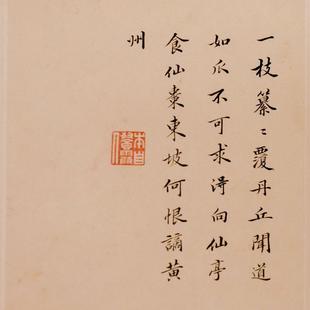 一枝纂〻覆丹丘聞道
如瓜不可求淂向仙亭
食仙棗東坡何恨謫黄
州